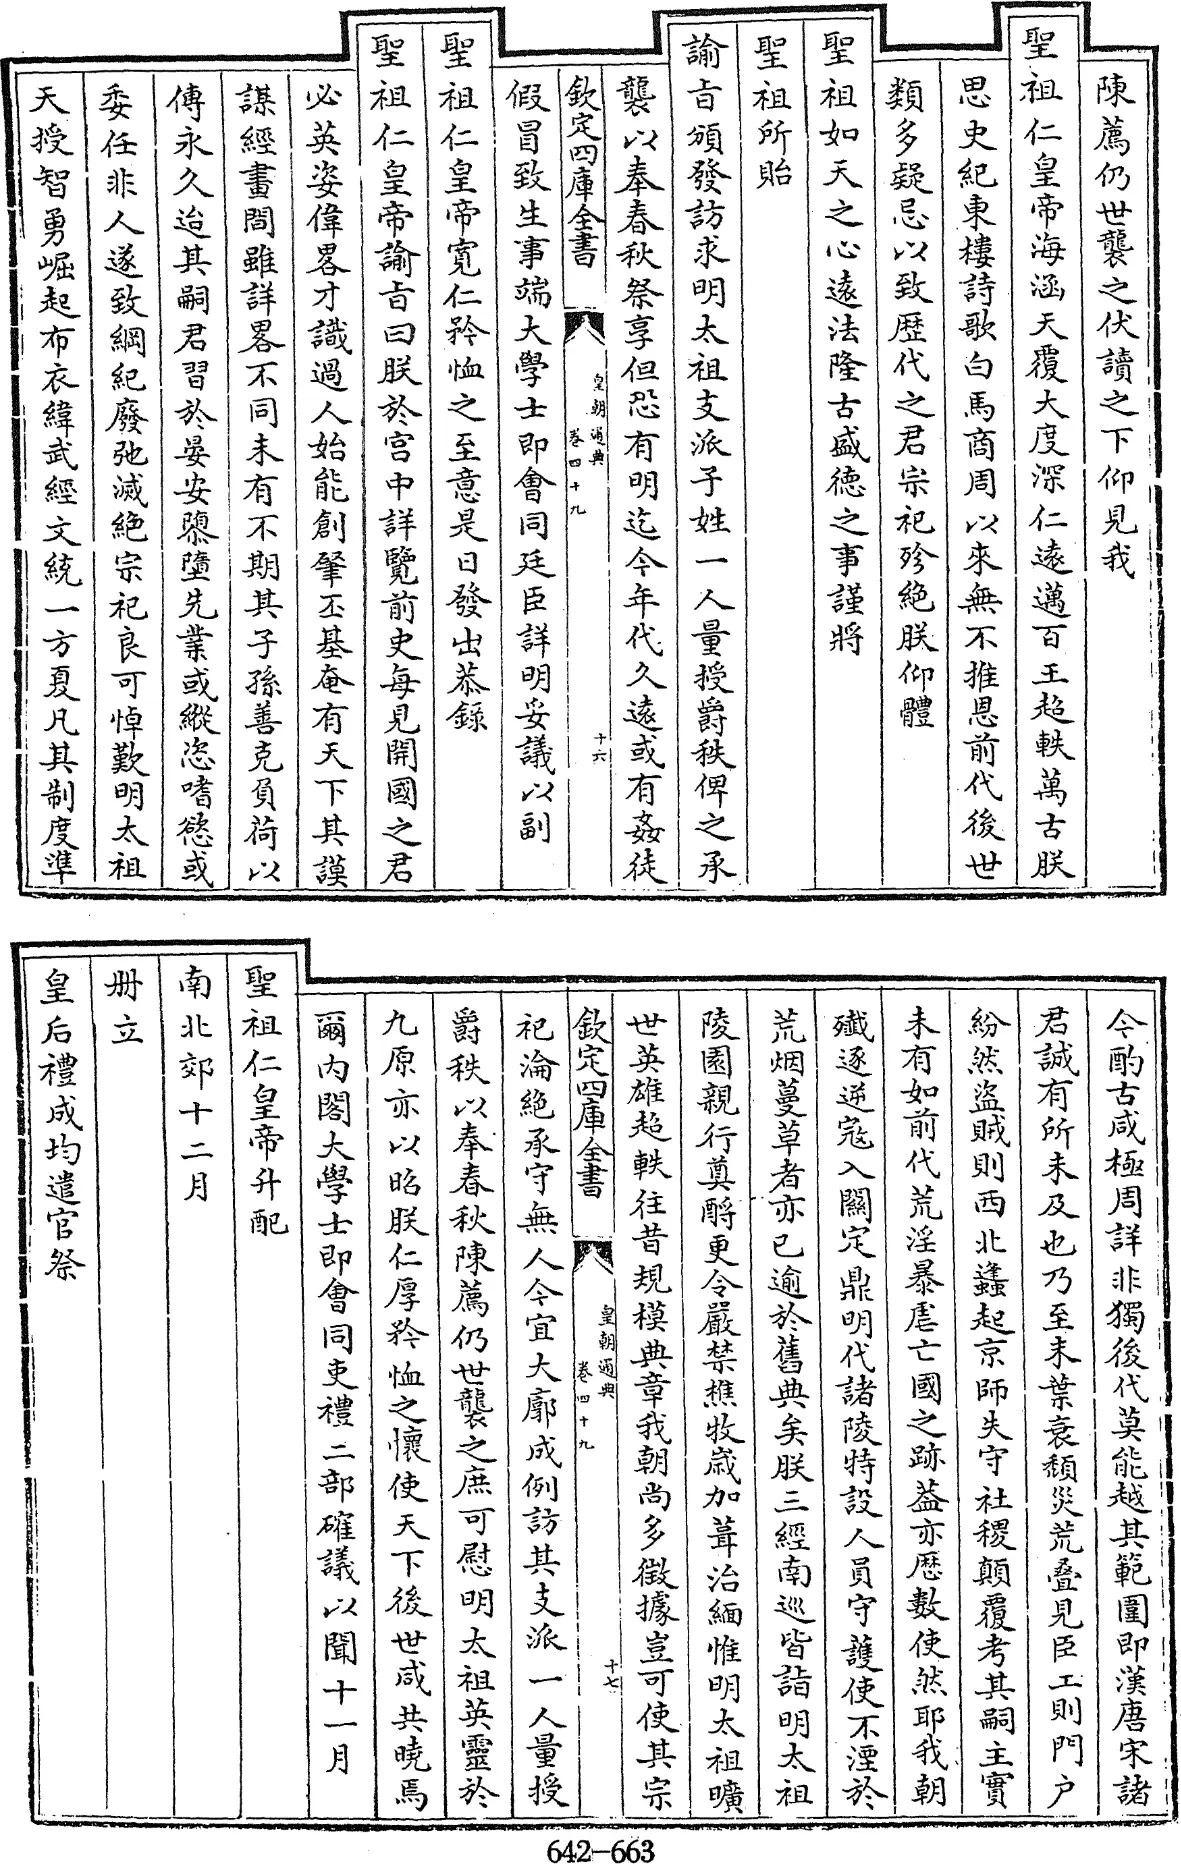 陳薦仍世襲之伏讀之下仰見我
聖祖仁皇帝海涵天覆大度深仁遠邁百王超軼萬古朕
思史紀東樓詩歌白馬商周以來無不推恩前代後世
類多疑忌以致歷代之君宗祀殄絕朕仰體
聖祖如天之心遠法隆古盛德之事謹將
聖祖所貽
諭旨頒發訪求明太祖支派子姓一人量授爵秩俾之承
襲以奉春秋祭享但恐有明迄今年代久遠或有姦徒
欽定四庫全書
皇朝通典
卷四十九
十六
假冒致生事端大學士即會同廷臣詳明妥議以副
聖祖仁皇帝寬仁矜恤之至意是日發出恭錄
聖祖仁皇帝諭旨曰朕於宫中詳覽前史每見開國之君
必英姿偉畧才識過人始能創肇丕基奄有天下其謨
謀經畫間雖詳畧不同未有不期其子孫善克負荷以
傳永久迨其嗣君習於晏安隳墮先業或縱恣嗜慾或
委任非人遂致綱紀廢弛滅絕宗祀良可悼歎明太祖
天授智勇崛起布衣緯武經文統一方夏凡其制度準
今酌古咸極周詳非獨後代莫能越其範圍即漢唐宋諸
君誠有所未及也乃至末葉衰頹災荒叠見臣工則門户
紛然盜賊則西北蠭起京師失守社稷顛覆考其嗣主實
未有如前代荒淫暴虐亡國之跡葢亦歷數使然耶我朝
殲逐逆寇入關定鼎明代諸陵特設人員守護使不湮於
荒烟蔓草者亦已逾於舊典矣朕三經南巡皆詣明太祖
陵園親行奠酹更令嚴禁樵牧嵗加葺治緬惟明太祖曠
世英雄超軼往昔規模典章我朝尚多徵據豈可使其宗
欽定四庫全書
皇朝通典
卷四十九
十七
祀淪絕承守無人今宜大廓成例訪其支派一人量授
爵秩以奉春秋陳薦仍世襲之庶可慰明太祖英靈於
九原亦以昭朕仁厚矜恤之懷使天下後世咸共曉焉
爾内閣大學士即會同吏禮二部確議以聞十一月
聖祖仁皇帝升配
南北郊十二月
冊立
皇后禮成均遣官祭
642-663